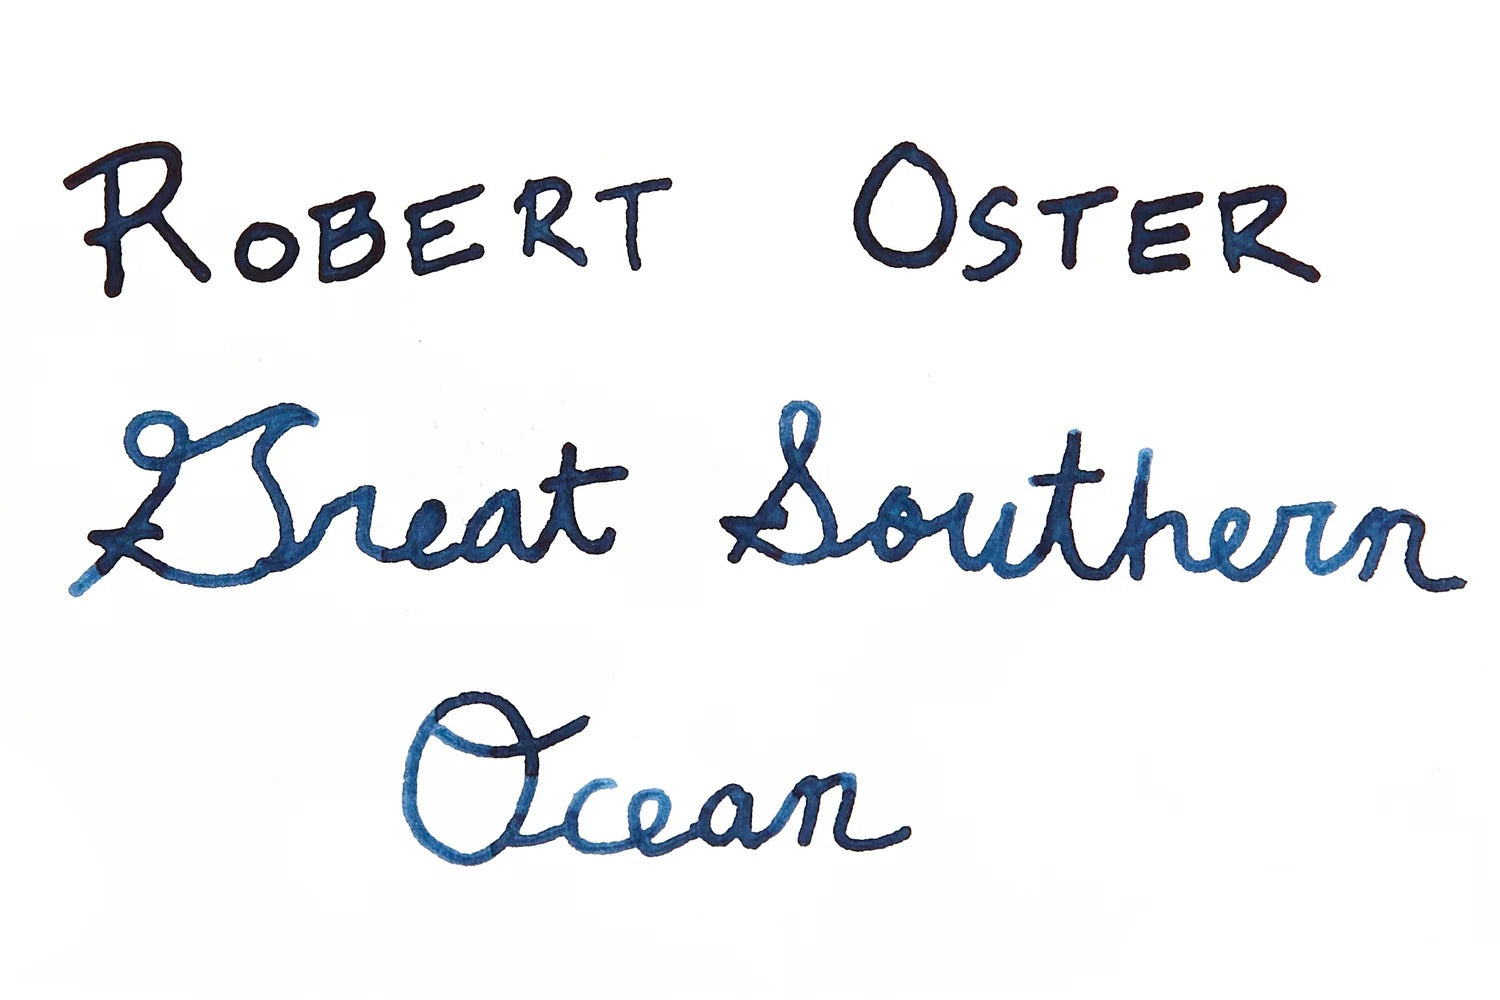 Robert Oster
Great Southern
Ocean